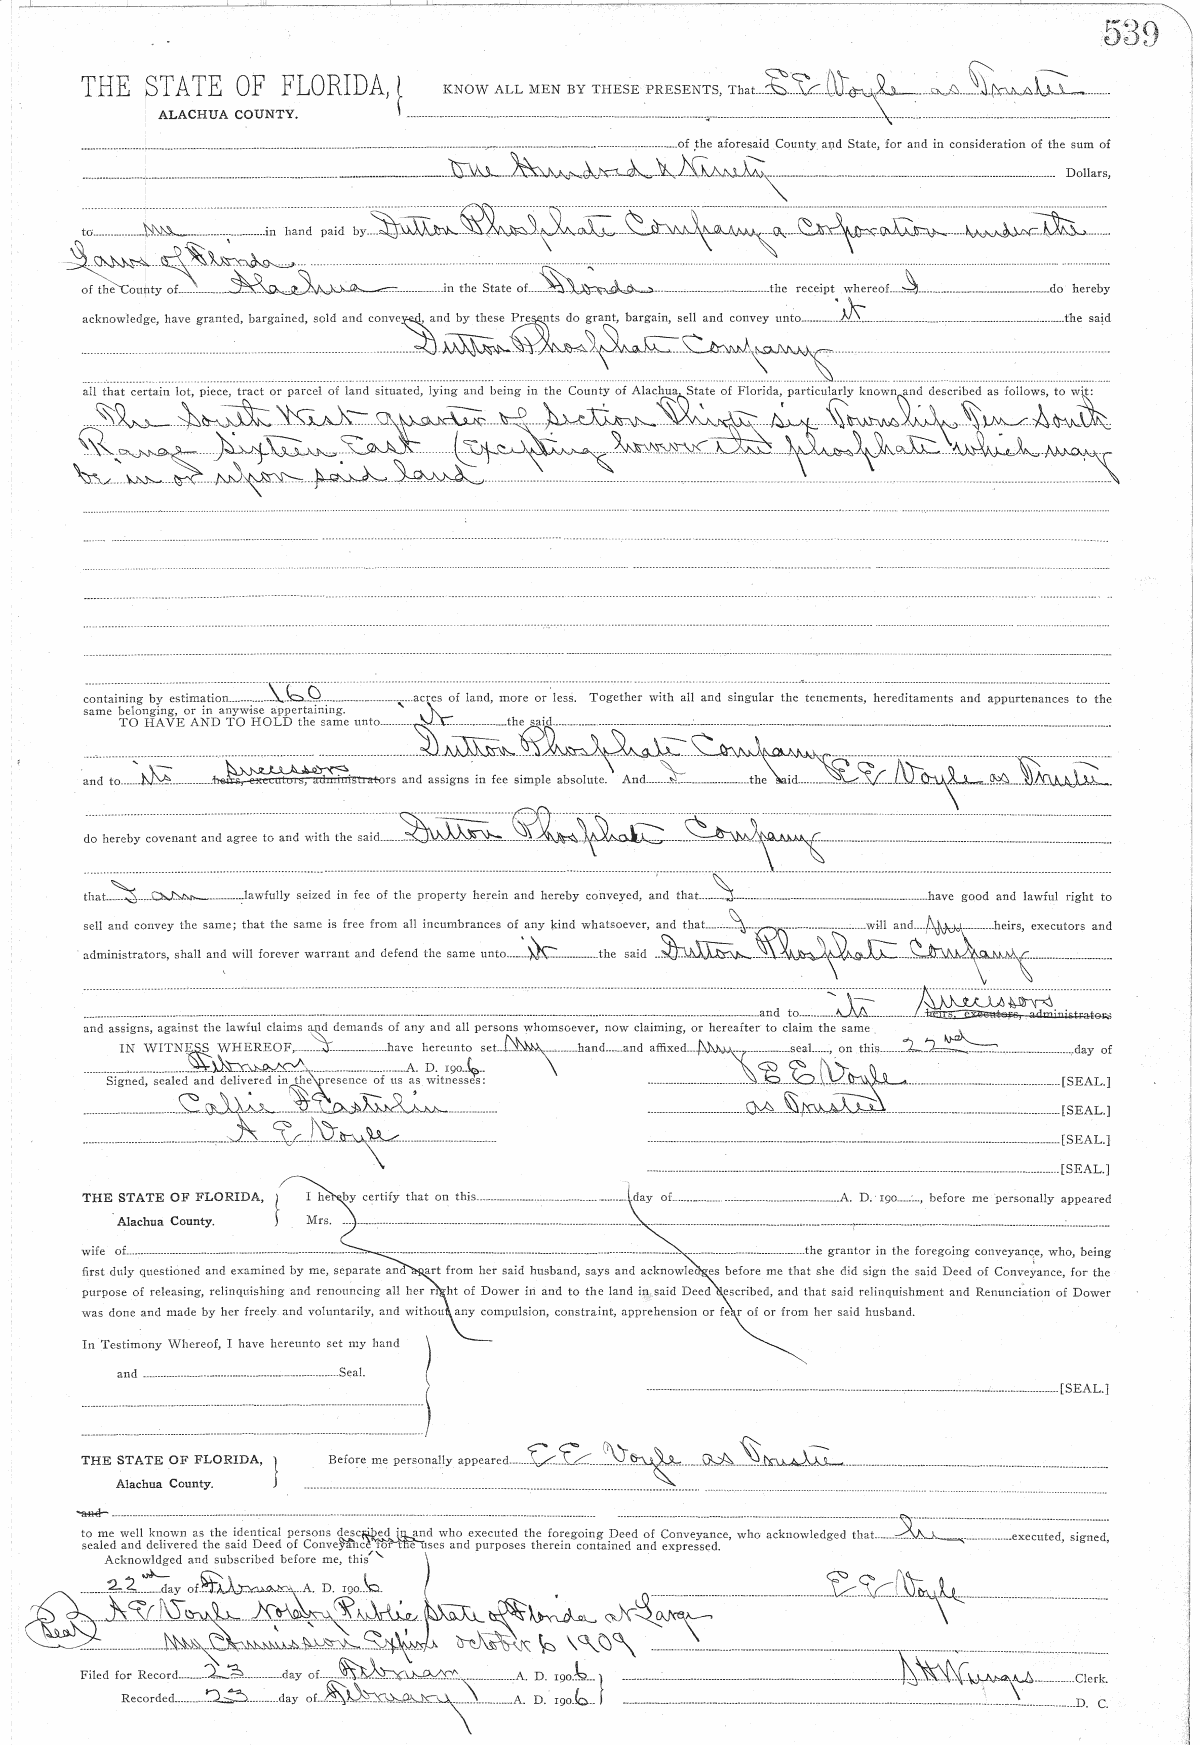 539
THE STATE OF FLORIDA, KNOW ALL MEN BY THESE PRESENTS, That E E Voyle as Trustee
ALACHUA COUNTY.
of the aforesaid County and State, for and in consideration of the sum of
One Hundred & Ninety Dollars,
to me in hand paid by Dutton Phosphate Company a corporation under the
Laws of Florida
of the County of Alachua in the State of Florida the receipt whereof I do hereby
acknowledge, have granted, bargained, sold and conveyed, and by these Presents do grant, bargain, sell and convey unto it the said
Dutton Phosphate Company
all that certain lot, piece, tract or parcel of land situated, lying and being in the County of Alachua, State of Florida, particularly known and described as follows, to wit:
The South West quarter of Section Thirty six Township Ten South
Range Sixteen East (Excepting however the phosphate which may
be in or upon said land
containing by estimation 160 acres of land, more or less. Together with all and singular the tenements, hereditaments and appurtenances to the
same belonging, or in anywise appertaining.
TO HAVE AND TO HOLD the same unto it the said
Dutton Phosphate Company
and to its successors heirs, executors, administrators and assigns in fee simple absolute. And I the said E E Voyle as Trustee
do hereby covenant and agree to and with the said Dutton Phosphate Company
that I am lawfully seized in fee of the property herein and hereby conveyed, and that I have good and lawful right to
sell and convey the same; that the same is free from all incumbrances of any kind whatsoever, and that I will and My heirs, executors and
administrators, shall and will forever warrant and defend the same unto it the said Dutton Phosphate Company
and to its Successors heirs, executors, administrators
and assigns, against the lawful claims and demands of any and all persons whomsoever, now claiming, or hereafter to claim the same
IN WITNESS WHEREOF, I have hereunto set My hand and affixed My seal, on this 22nd day of
February A. D. 1906
Signed, sealed and delivered in the presence of us as witnesses: E E Voyle [SEAL.]
Callie F Easterlin as Trustee [SEAL.]
A E Voyle [SEAL.]
[SEAL.]
THE STATE OF FLORIDA, I hereby certify that on this day of A. D. 190 , before me personally appeared
Alachua County. Mrs.
wife of the grantor in the foregoing conveyance, who, being
first duly questioned and examined by me, separate and apart from her said husband, says and acknowledges before me that she did sign the said Deed of Conveyance, for the
purpose of releasing, relinquishing and renouncing all her right of Dower in and to the land in said Deed described, and that said relinquishment and Renunciation of Dower
was done and made by her freely and voluntarily, and without any compulsion, constraint, apprehension or fear of or from her said husband.
In Testimony Whereof, I have hereunto set my hand
and Seal.
[SEAL.]
THE STATE OF FLORIDA, Before me personally appeared E E Voyle as Trustee
Alachua County.
and
to me well known as the identical persons described in and who executed the foregoing Deed of Conveyance, who acknowledged that he executed, signed,
sealed and delivered the said Deed of Conveyance as Trustee for the uses and purposes therein contained and expressed.
Acknowldged and subscribed before me, this
22nd day of February A. D. 1906 E E Voyle
Seal A E Voyle Notary Public State of Florida at Large
My Commission Expires October 6 1909
Filed for Record 23 day of February A. D. 1906 S H Wienges Clerk.
Recorded 23 day of February A. D. 1906 D. C.